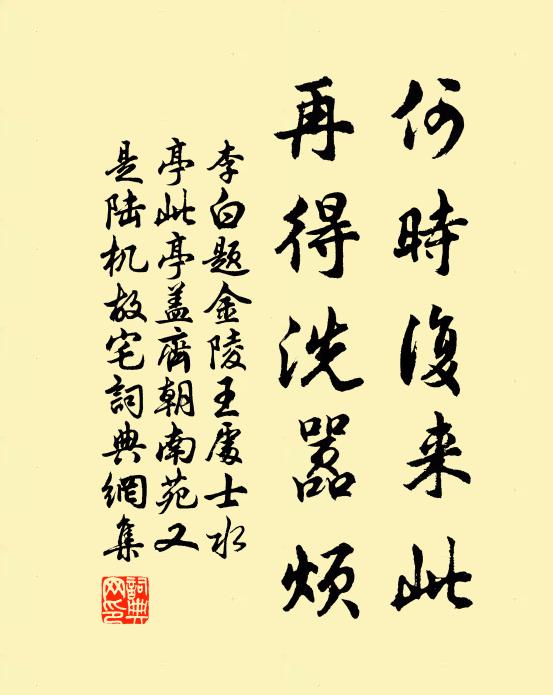 何時復来此
再得洗囂煩
李白題金陵王處士水
亭此亭蓋齊朝南苑又
是陆机故宅詞典網集
詞典網印